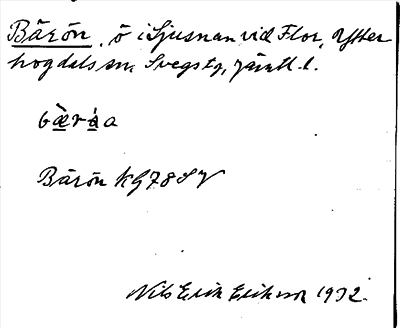 Bärön, ö i Ljusnan vid Flor, Ytter
hogdals sn. Svegs tg, Jämtl. l.
bæ̀ró̱a
Bärön KG78SV
Nils Erik Erikson 1932.